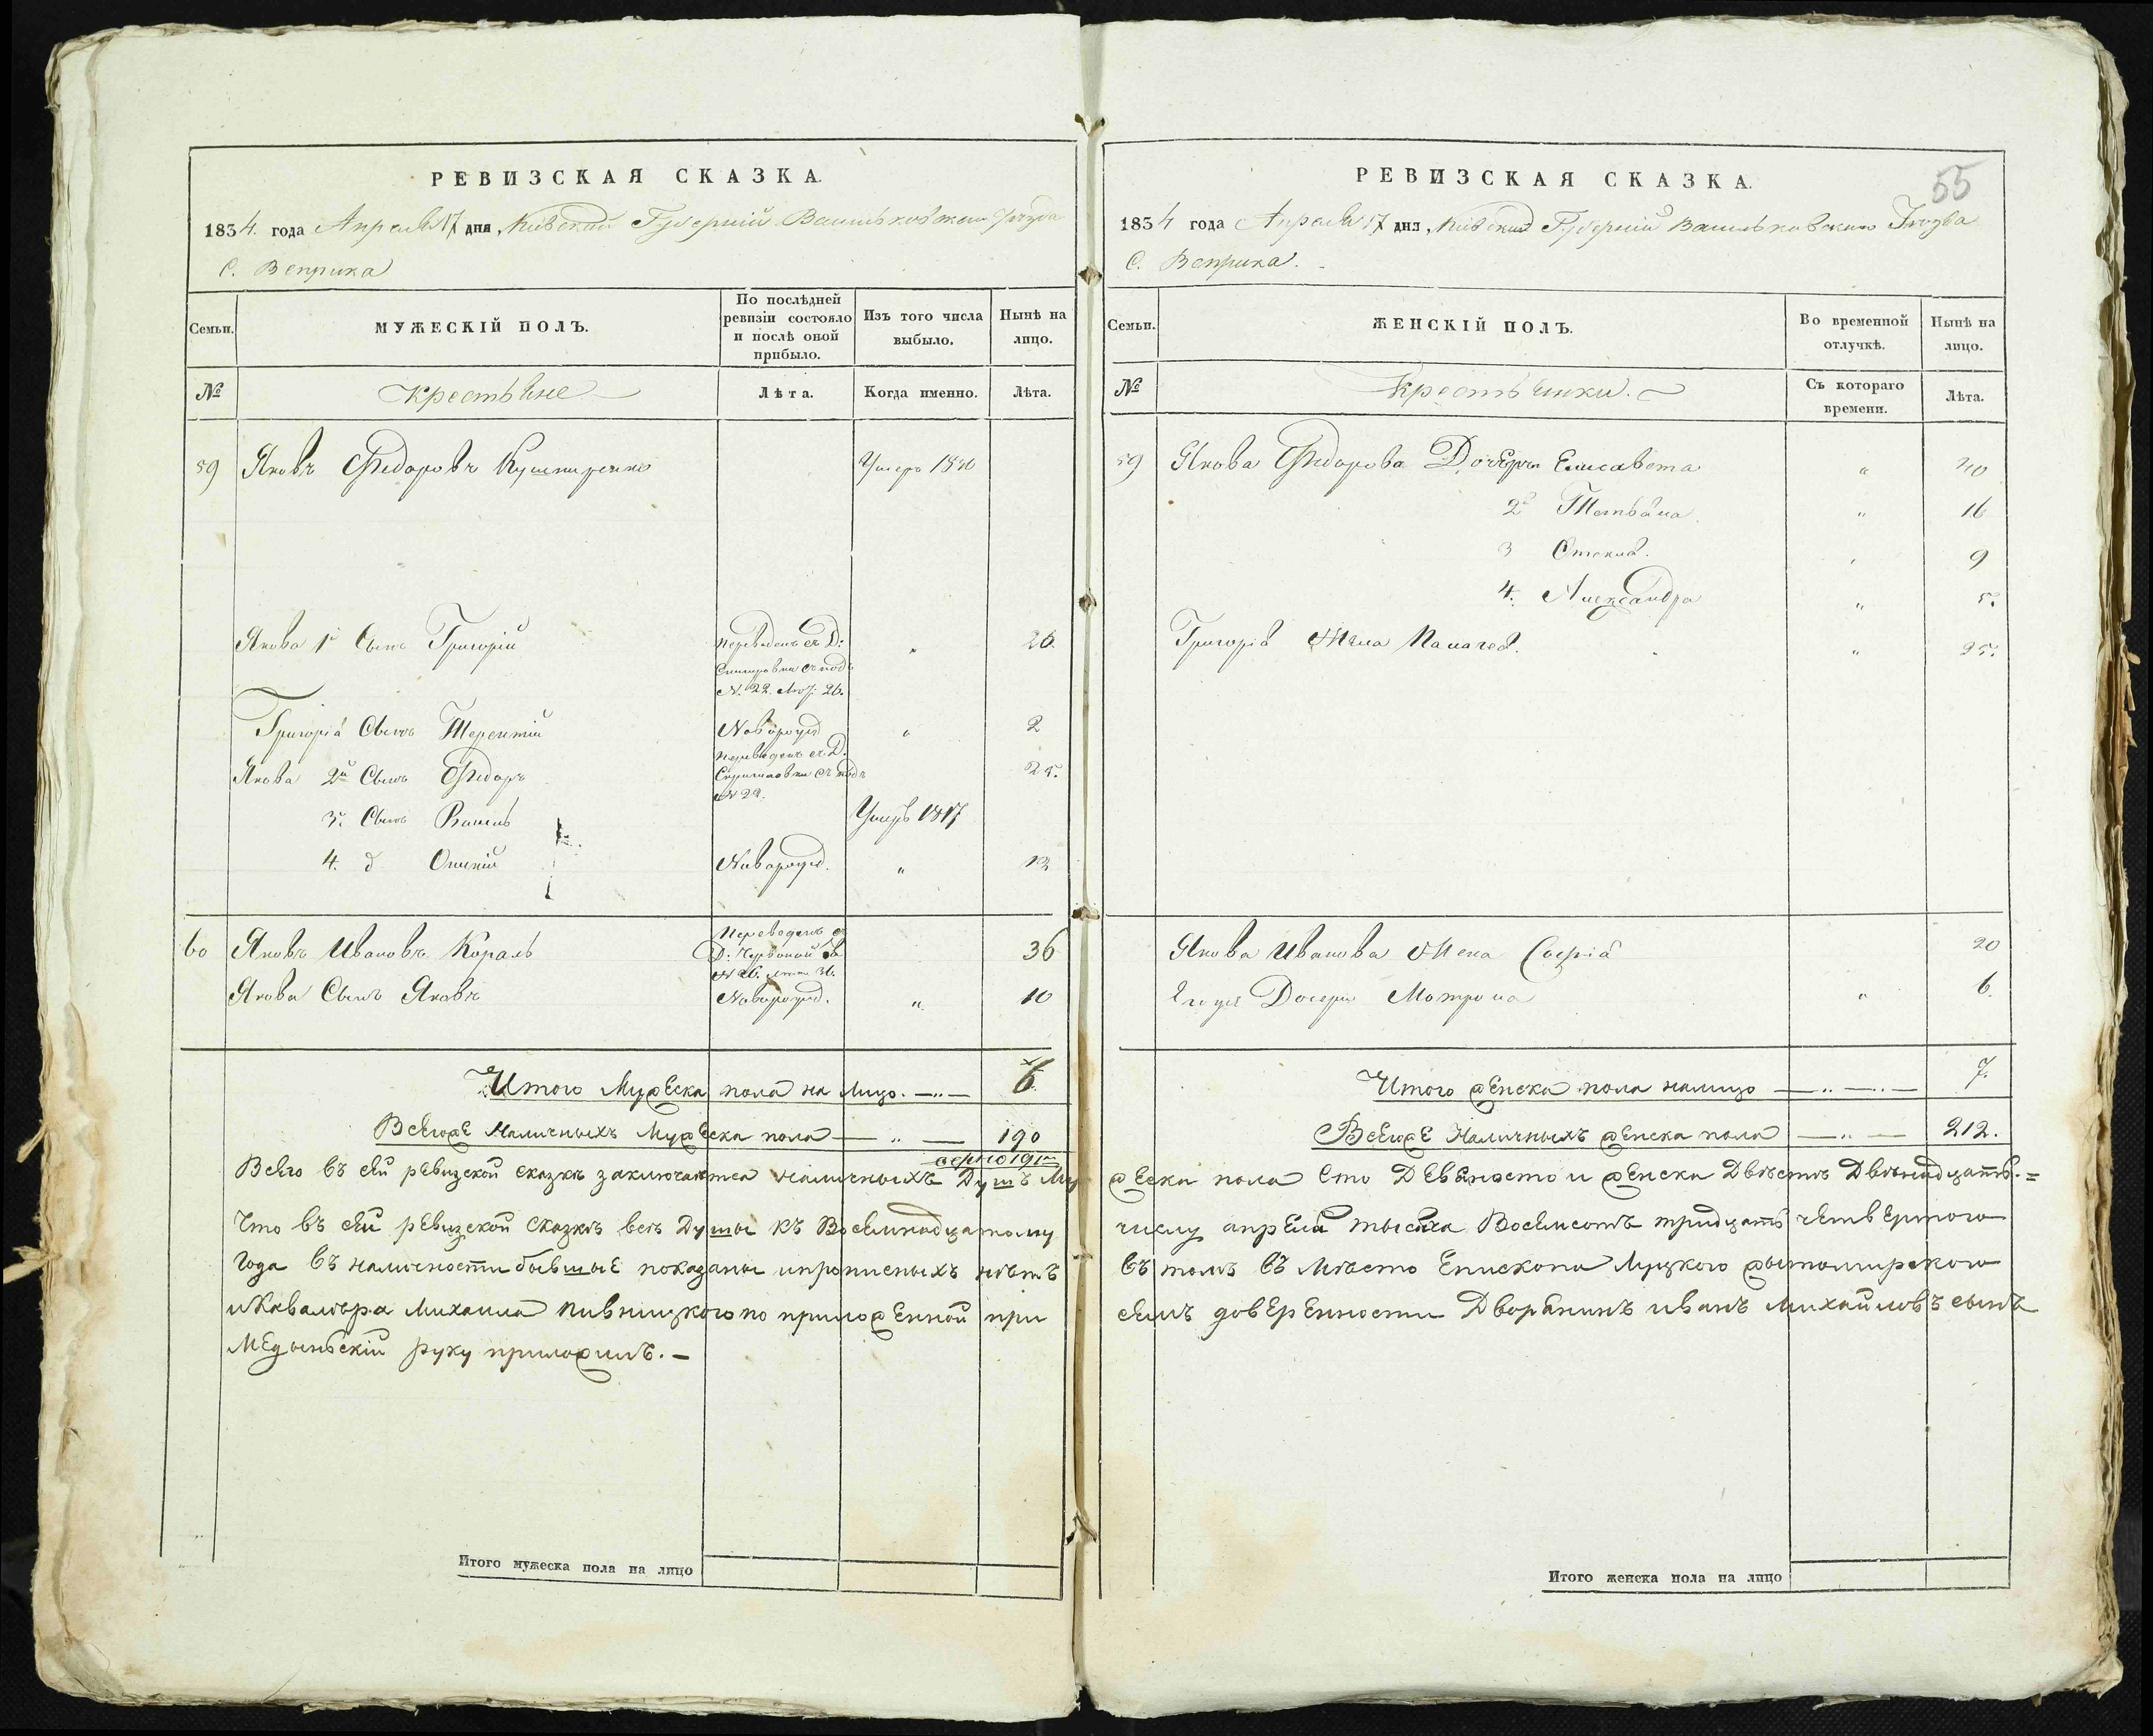 РЕВИЗСКАЯ СКАЗКА.
1834. года Апреля 17 дня, Киевской Губернии Васильковскаго Уезда
С. Веприка
Семьи.
МУЖЕСКІЙ ПОЛЪ.
По послѣдней ревизіи состояло и послѣ оной прибыло.
Изъ того числа выбыло.
Нынѣ на лицо.
№
Крестьяне
Лѣта.
Когда именно.
Лѣта.
59 Яковъ Федоровъ Кушниренко Умеръ 1830
Якова 1й Сынъ Григорій Переведенъ съ Д. 26.
съ подъ
N. 22. 26.
Григорія Сынъ Терентий Наворожд „ 2
Переведенъ съ Д.
Якова 2й Сынъ Федоръ съ подъ 25.
N 22.
3й Сынъ Василь Умеръ 1817
4. д Наворожд. „ 13
60 Яковъ Ивановъ Король Переведенъ с 36
Д. N 26. лѣтъ 36.
Якова Сынъ Яковъ Наворожд. „ 10
Итого Мужеска пола на лицо. 6
Всегоже Наличныхъ Мужеска пола 190
Всего въ сей ревизской сказкѣ заключается наличныхъ Душъ Му
Что въ сей ревизской Сказкѣ всѣ Души къ Восемнадцатому
Года въ наличности бывшые показаны ипрописныхъ нѣтъ
иКавалѣра Михаила Пивницкого по приложенной при
Медынскій руку приложилъ. –
Итого мужеска пола на лицо
55
РЕВИЗСКАЯ СКАЗКА.
1834 года Апреля 17 дня, Киевской Губерний Васильковского Уезда
С. Веприка.
Семьи.
ЖЕНСКІЙ ПОЛЪ.
Во временной отлучкѣ.
Нынѣ на лицо.
№
Крестьянки.
Съ котораго времени.
Лѣта.
59 Якова Федорова Дочери Елисавета „ 20
2я Татьяна „ 16
3 9
4. Александра „ 5.
Григорія Жена Палагея. „ 25.
Якова Иванова Жена Софія 20
Дочерь Матрона „ 6.
Итого женска пола налицо 7.
Всегоже Наличныхъ женска пола 212.
жеска пола Сто Девяносто и женска Двѣстѣ Двѣнадцать. =
числу апреля тысяча Восемсотъ тридцать четвертого
въ томъ въ мѣсто Епископа Луцкого житомирского
семъ доверенности Дворянинъ иванъ михайловъ сынъ
Итого женска пола на лицо